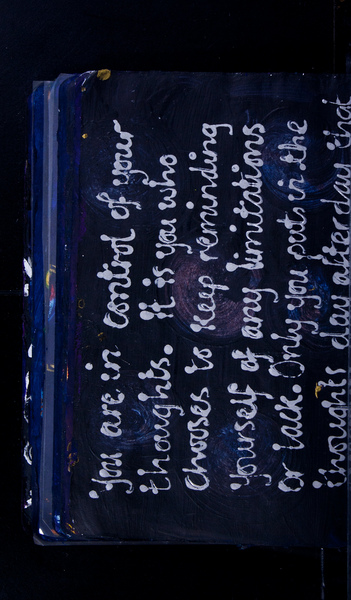 You are in control of your
thoughts. It is you who
chooses to keep reminding
yourself of any limitations
or lack. Only you puts in the
thoughts day after day that